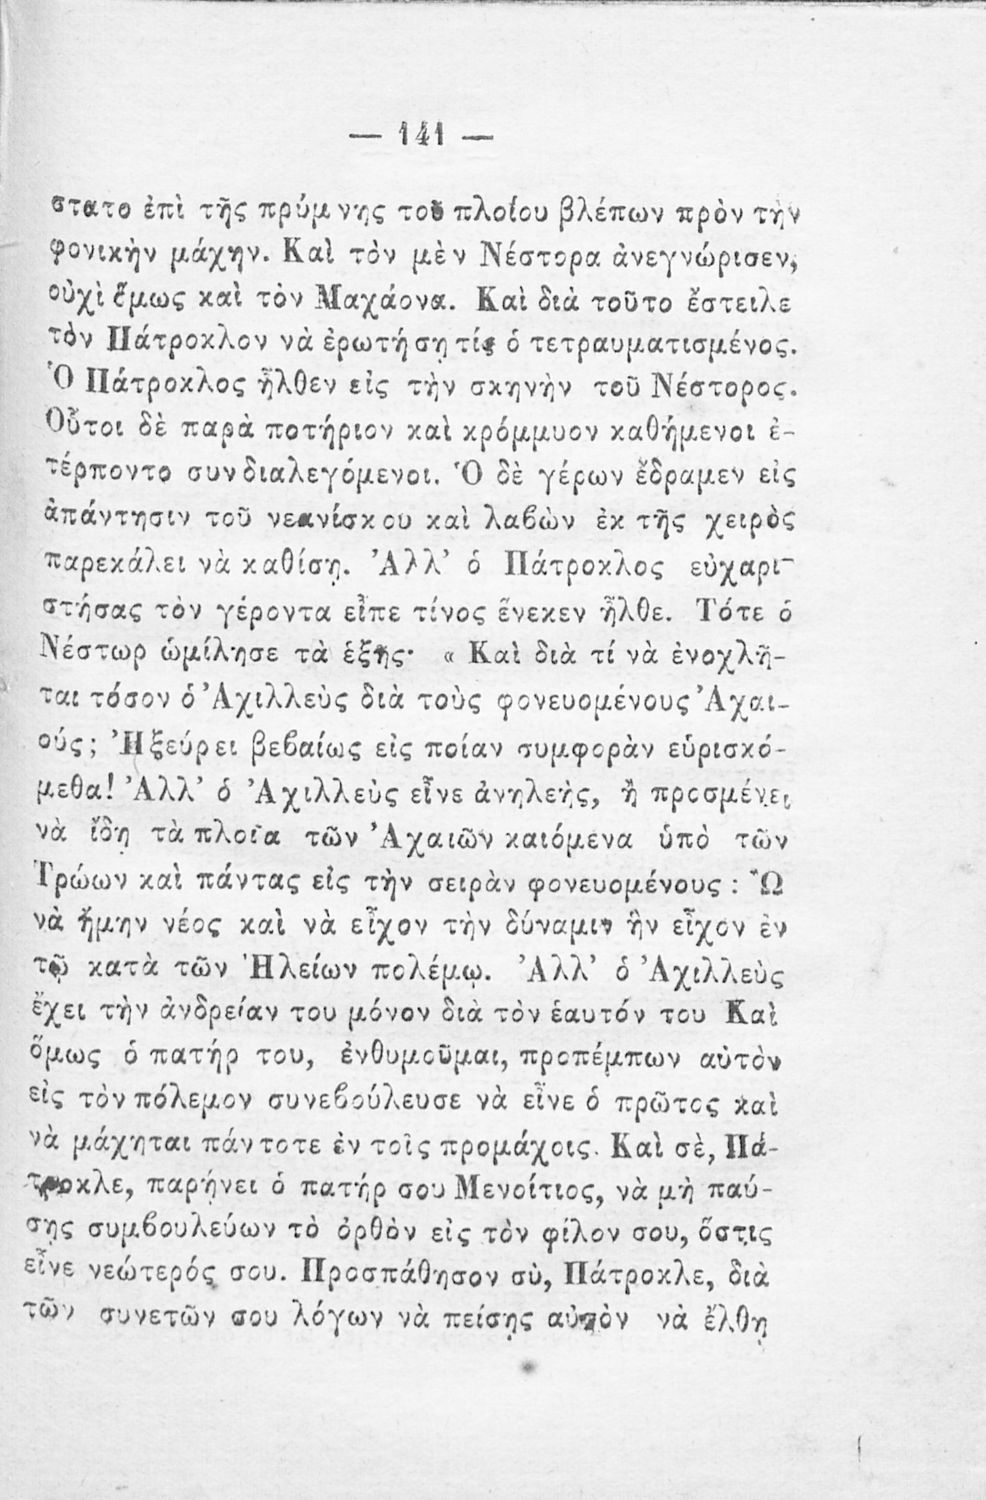 — 141 —
στατο ἐπὶ τῆς πρύμνης τοῦ πλοίου βλέπων πρὸν τὴν
φονικὴν μάχην. Καὶ τὸν μὲν Νέστορα ἀνεγνώρισεν,
οὐχὶ ὅμως καὶ τὸν Μαχάονα. Καὶ διὰ τοῦτο ἔστειλε
τὸν Πάτροκλον νὰ ἐρωτήσῃ τίς ὁ τετραυματισμένος.
Ὁ Πάτροκλος ἦλθεν εἰς τὴν σκηνὴν τοῦ Νέστορος.
Οὗτοι δὲ παρὰ ποτήριον καὶ κρόμμυον καθήμενοι ἐ-
τέρποντο συνδιαλεγόμενοι. Ὁ δὲ γέρων ἔδραμεν εἰς
ἀπάντησιν τοῦ νεανίσκου καὶ λαβὼν ἐκ τῆς χειρὸς
παρεκάλει νὰ καθίσῃ. Ἀλλ’ ὁ Πάτροκλος εὐχαρι-
στήσας τὸν γέροντα εἶπε τίνος ἕνεκεν ἦλθε. Τότε ὁ
Νέστωρ ὡμίλησε τὰ ἑξῆς· « Καὶ διὰ τί νὰ ἐνοχλῆ-
ται τόσον ὁ Ἀχιλλεὺς διὰ τοὺς φονευομένους Ἀχαι-
ούς; Ἠξεύρει βεβαίως εἰς ποίαν συμφορὰν εὑρισκό-
μεθα! Ἀλλ’ ὁ Ἀχιλλεὺς εἶνε ἀνηλεὴς, ἢ προσμένει
νὰ ἴδῃ τὰ πλοῖα τῶν Ἀχαιῶν καιόμενα ὑπὸ τῶν
Τρώων καὶ πάντας εἰς τὴν σειρὰν φονευομένους : Ὢ
νὰ ἤμην νέος καὶ νὰ εἶχον τὴν δύναμιν ἣν εἶχον ἐν
τῷ κατὰ τῶν Ἠλείων πολέμῳ. Ἀλλ’ ὁ Ἀχιλλεὺς
ἔχει τὴν ἀνδρείαν του μόνον διὰ τὸν ἑαυτόν του Καὶ
ὅμως ὁ πατήρ του, ἐνθυμοῦμαι, προπέμπων αὐτὸν
εἰς τὸν πόλεμον συνεβούλευσε νὰ εἶνε ὁ πρῶτος καὶ
νὰ μάχηται πάντοτε ἐν τοῖς προμάχοις. Καὶ σὲ, Πά-
τροκλε, παρῄνει ὁ πατήρ σου Μενοίτιος, νὰ μὴ παύ-
σῃς συμβουλεύων τὸ ὀρθὸν εἰς τὸν φίλον σου, ὅστις
εἶνε νεώτερός σου. Προσπάθησον σὺ, Πάτροκλε, διὰ
τῶν συνετῶν σου λόγων νὰ πείσῃς αὐτὸν νὰ ἔλθῃ